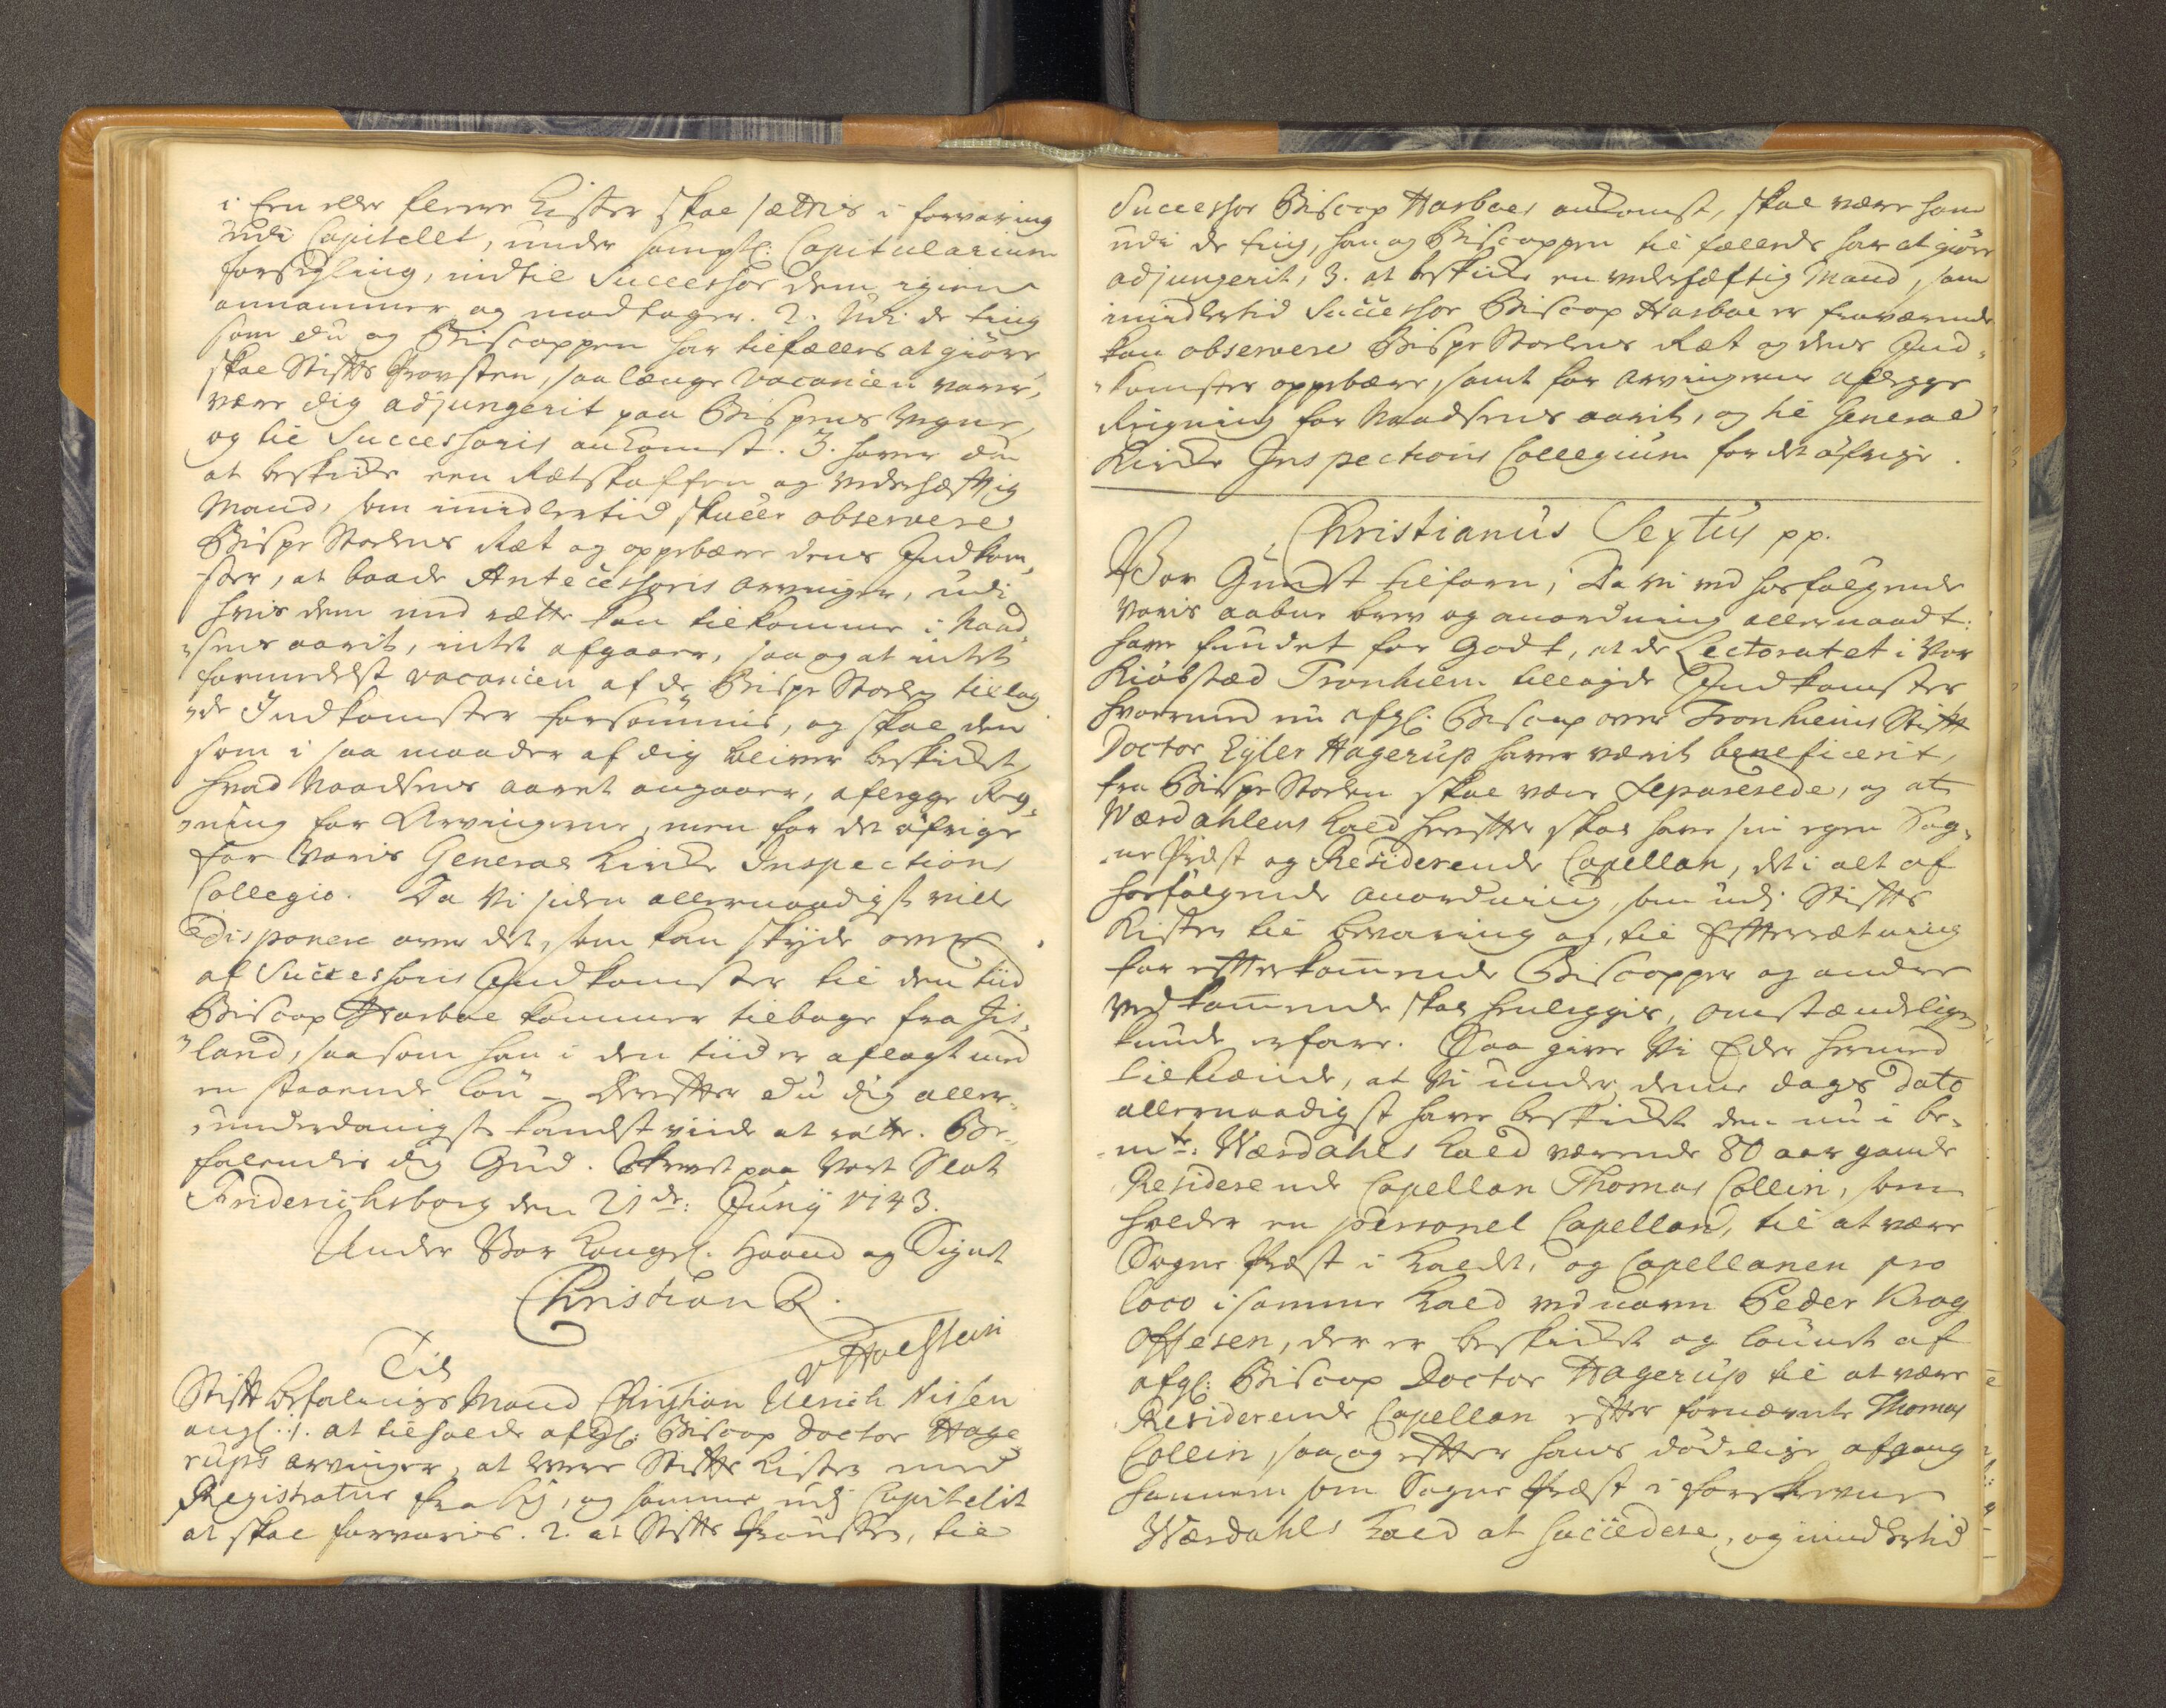 i Een eller fleere Kister skal sættes i forvaring
udi Capitellet, under sampl: Capitularium
forsegling, indtil Successor dem igien
annammer og modtager. 2. Udi de ting
som du og Biscoppen har tilfælles at giøre,
skal Stifts Provsten, saalænge vacancien varer,
være dig adjungerit paa Bispens Vegne,
og til Successoris ankomst. 3. haver du
at beskicke een Retskaffen og vederhæftig
Mand, som imidlertid skulle observere
Bispe Stolens Ret og oppebære dens Indkom,
ster, at baade Antecessoris Arvinger, udi
hvis dem med rette kan tilkomme i Naad,
„sens aarit, intet afgaaer, saa og at intet
formedelst vacancien af de Bispe Stolen tillag
„de Indkomster forsømmis, og skal den
som i saa maader af dig bliver beskicket,
hvad Naadsens aaret angaaer, aflegge Reg,
„ning for Arvingerne, men for de øfrige
for Voris General Kircke Inspections
Collegio. Da Vi siden allernaadigst vill
disponere over det, som kan skyde over
af Successoris Indkomster til den tiid
Biscop Harboe kommer tilbage fra Iis,
„land, saasom han i den tiid er aflagt med
en staaende løn – Derefter du dig aller,
„underdanigst kandst viide at rætte. Be,
falendis dig Gud. Skrevet paa Vort Slot
Friderichsborg den 21de: Junij 1743.
Under Vor Kongl. Haand og Signet
Christian R.
v Holstein
Til
Stift befalings Mand Christian Ulrich Nissen
angl: 1. at tilholde afgl: Biscop Doctor Hage
rups Arvinger, at levere Stifts Kisten med
Registratur fra sig, og samme udi Capitelit
at skal forvaris. 2. at Stifts Provsten, til
Successor Biscop Harboes ankomst, skal være ham
udi de ting, han og Biscoppen til fælleds har at giøre
adjungerit, 3. at beskicke en vederhæftig Mand, som
imidlertid Successor Biscop Harboe er fraværende
kan observere Bispe Stolens Ret og dens Ind,
„komster oppebære, samt for Arvingerne aflegge
Reigning for Naadsens aarit, og til General
Kircke Inspections Collegium for det øfrige.
Christianus Sextus pp.
Vor Gunst tilforn, Da Vi ved hosfølgende
Voris aabne brev og anordning allernaadt:
have fundet for Godt, at de Lectoratet i Vor
Kiøbstæd Tronhiem tillagde Indkomster
hvormed nu afgl: Biscop over Tronhiems Stift
Doctor Eyler Hagerup haver værit beneficerit,
fra Bispe Stolen skal være separerede, og at
Værdahlens Kald herefter skal have sin egen Sog,
„ne Præst og Residerende Capellan, det i alt af
hosfølgende anordning, som udi Stifts
Kisten til bevaring og, til Efterrætning
for efterkommende Biscopper og andre
vedkommende skal henlegges, omstændelig
kunde erfare. Saa give Vi Eder hermed
tilkiænde, at Vi under denne dags dato
allernaadigst have beskicket den nu i be,
„mte: Værdahls Kald værende 80 aar gamle
Residerende Capellan Thomas Collin, som
holder en personel Capellan, til at være
Sogne Præst i Kaldet, og Capellanen pro
loco i samme Kald ved navn Peder Krog
Offesen, der er beskicket og lønnet af
afgl: Biscop Doctor Hagerup til at være
Residerende Capellan efter fornævnte Thomas
Collin, saa og efter hans dødelige afgang
hannem som Sogne Præst i forskrevne
Værdahls Kald at succedere, og imidlertid